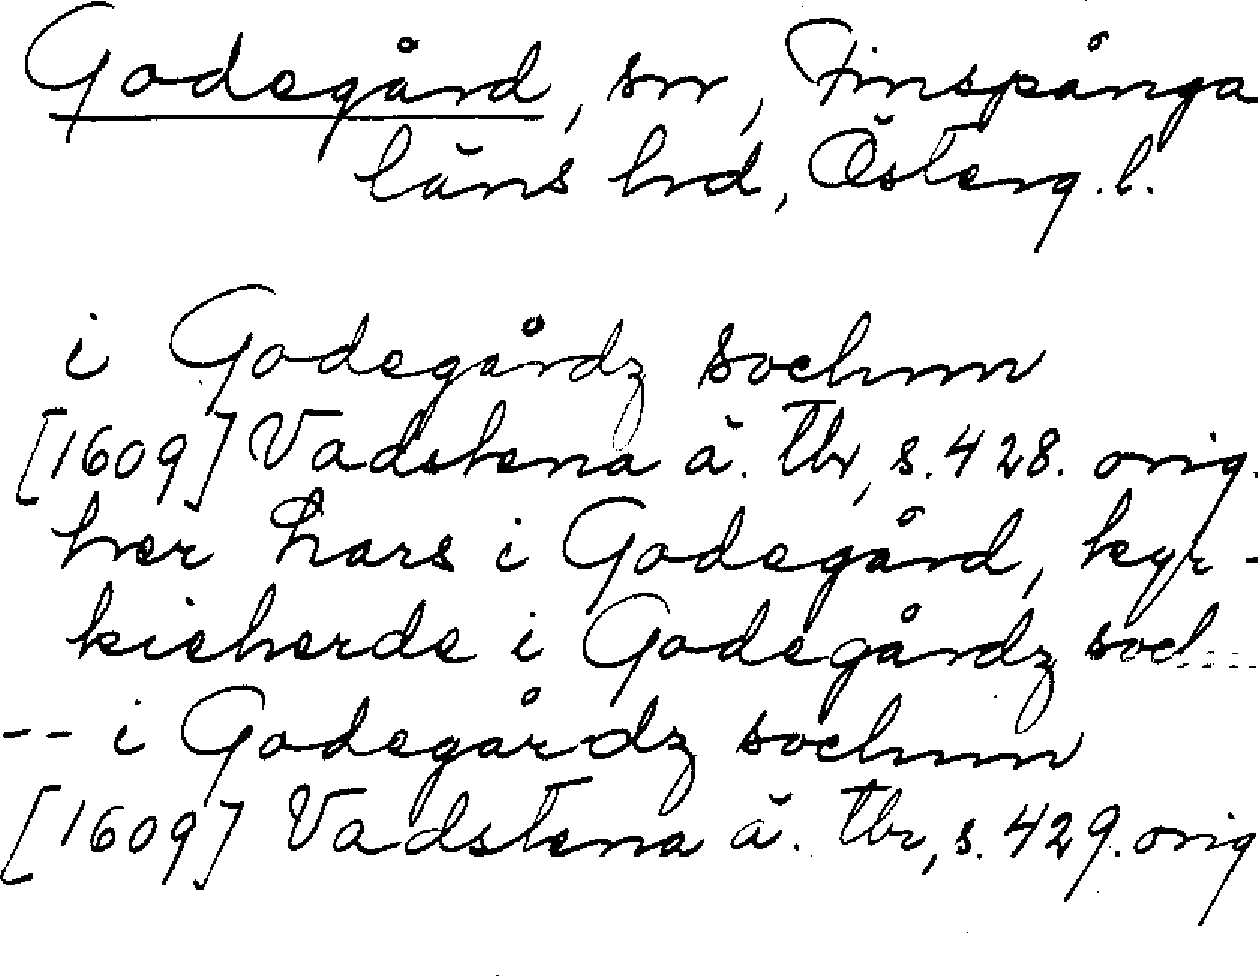 Godegård, sn, Finspånga
läns hd, Österg. l.
i Godegårdz sochnn
[1609] Vadstena ä. Tbr, s. 428. orig.
her Lars i Godegård, kyr-
kieherde i Godegårdz soch----
-- i Godegårdz sochnn
[1609] Vadstena ä. Tbr, s. 429. orig